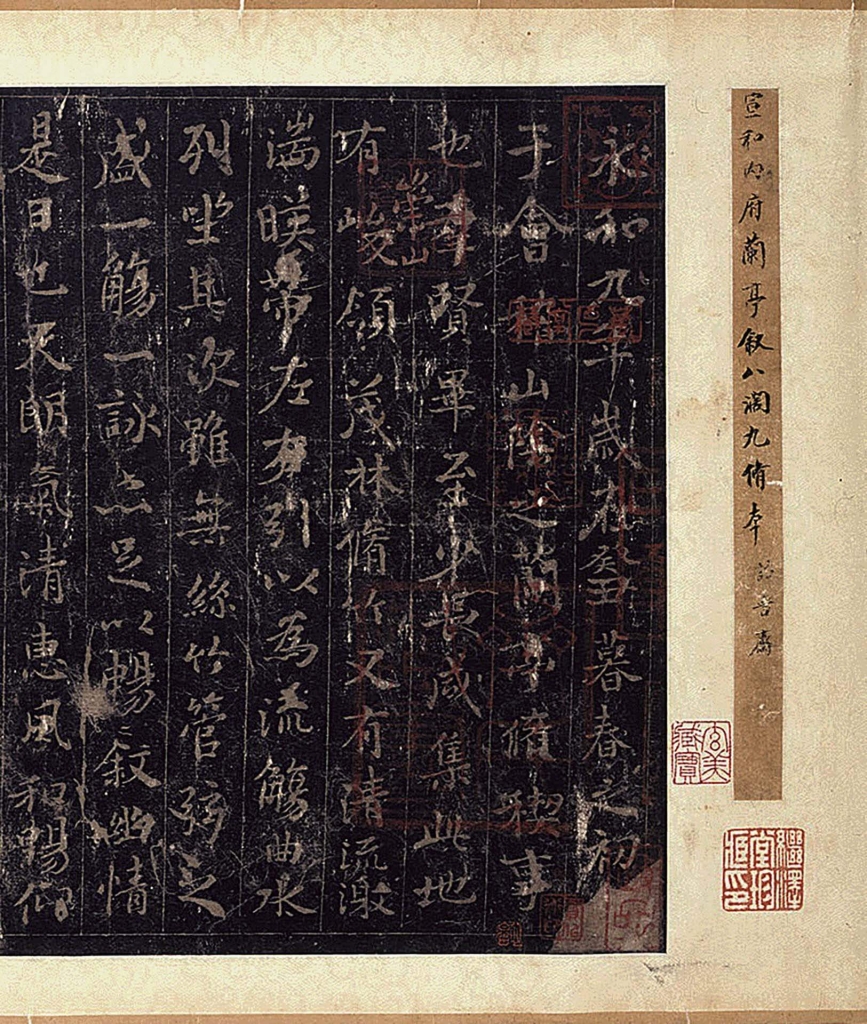 宣和內府蘭亭敘八闊九脩本 詒晉齋
玄美藏寶
永和九年歲在癸丑暮春之初
于會稽山陰之蘭亭脩稧事
也羣賢畢至少長咸集此地
有峻領茂林脩竹又有清流激
湍暎帶左右引以為流觴曲水
列坐其次雖無絲竹管弦之
盛一觴一詠亦足以暢敘幽情
是日也天朗氣清惠風和暢仰